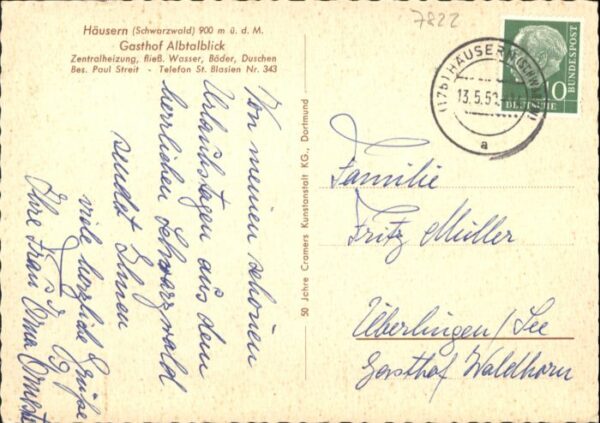 Häusern (Schwarzwald) 900 m ü. d. M.
Gasthof Albtalblick
Zentralheizung, fließ. Wasser, Bäder, Duschen
Bes. Paul Streit - Telefon St. Blasien Nr. 343
7822
(17b) HÄUSERN (SCHWARZW)
13.5.5
a
10
DEUTSCHE
BUNDESPOST
Von meinen schönen
Urlaubstagen aus dem
herrlichen Schwarzwald
sendet Ihnen
viele herzliche Grüße
Ihre Frau
50 Jahre Cramers Kunstanstalt KG., Dortmund
Familie
Fritz Müller
Überlingen/See
Gasthof Waldhorn